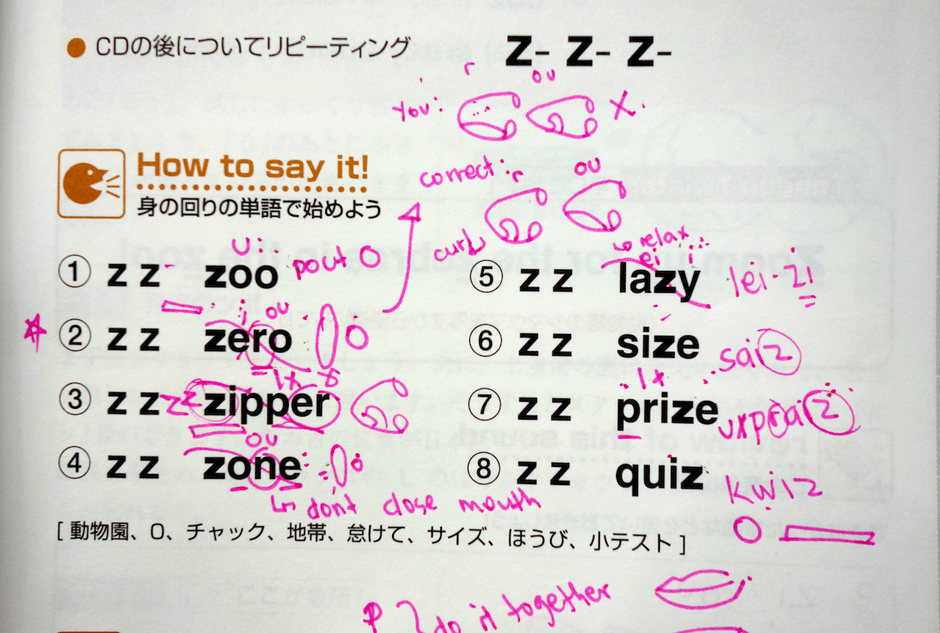 ● CDの後についてリピーティング z- z- z-
r ou
You: X.
How to say it!
身の回りの単語で始めよう
correct: r ou
curl
① z z zoo u: pout
② z z zero i ou
③ z z zipper
④ z z zone ou
don't close mouth
⑤ z z lazy relax ei i lei-zi
⑥ z z size saiz
⑦ z z prize 1x
⑧ z z quiz kwiz
[ 動物園、0、チャック、地帯、怠けて、サイズ、ほうび、小テスト ]
P } do it together